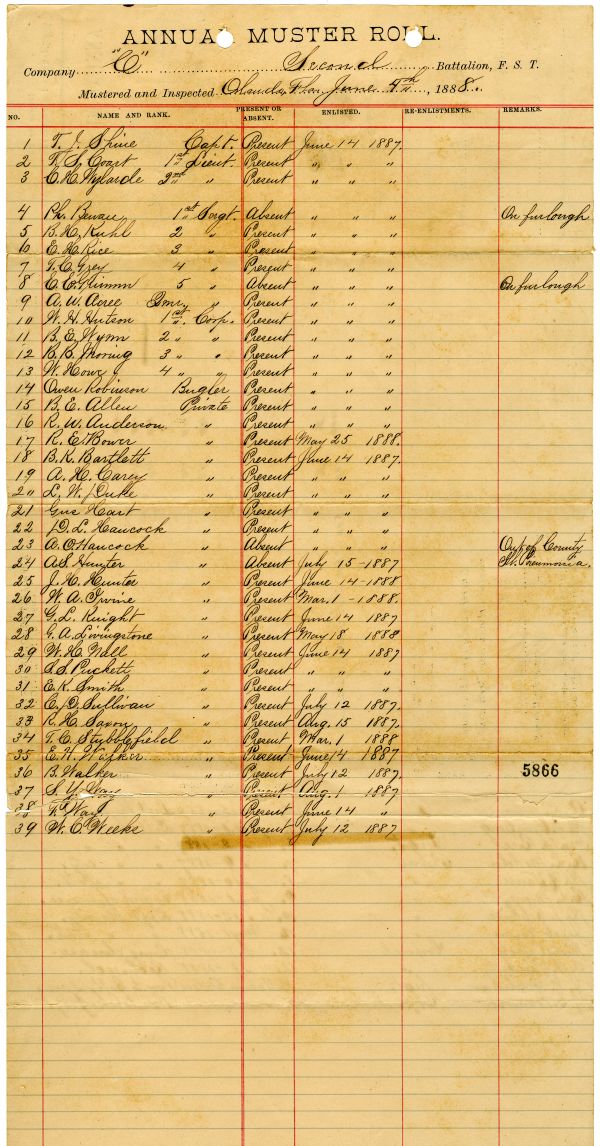 ANNUAL MUSTER ROLL.
Company "C" Second Battalion, F. S. T.
Mustered and Inspected Orlando, Fla. June 4th, 1888.
NO. NAME AND RANK. PRESENT OR ABSENT. ENLISTED. RE-ENLISTMENTS. REMARKS.
1 T. J. Shine Capt. Present June 14 1887.
2 1st Lieut. Present " " "
3 2nd " Present " " "
4 Ph. Bevan 1st Sergt. Absent " " " On furlough
5 B. H. Kuhl 2 " Present " " "
6 E. H. Rice 3 " Present " " "
7 T. C. Grey 4 " Present " " "
8 5 " Absent " " " On furlough
9 A. W. Acree " Present " " "
10 W. H. Hutson 1st Corp. Present " " "
11 B. E. Wynn 2 " " Present " " "
12 3 " " Present " " "
13 W. Howe 4 " " Present " " "
14 Owen Robinson Bugler Present " " "
15 B. E. Allen Private Present " " "
16 R. W. Anderson " Present " " "
17 R. E. Bower " Present May 25 1888.
18 B. K. Bartlett " Present June 14 1887.
19 A. H. Carey " Present " " "
20 L. W. Duke " Present " " "
21 Gus Hart " Present " " "
22 D. L. Hancock " Present " " "
23 A. O. Hancock " Absent " " " Out of County
24 A. S. Hunter " Absent July 15 - 1887 Pneumonia.
25 J. H. Hunter " Present June 14 - 1888
26 W. A. Irvine " Present Mar. 1 - 1888.
27 G. L. Knight " Present June 14 1887
28 G. A. Livingstone " Present May 18 1888
29 W. H. Nall " Present June 14 1887
30 Puckett " Present " " "
31 E. K. Smith " Present " " "
32 C. D. Sullivan " Present July 12 1887.
33 R. H. Saxon " Present Aug. 15 1887.
34 T. C. Stubblefield " Present Mar. 1 1888
35 E. H. " Present June 14 1887
36 B. Walker " Present July 12 1887
5866
37 S. Y. Way " Present Aug. 1 1887
38 Way " Present June 14 "
39 W. C. Weeks " Present July 12 1887